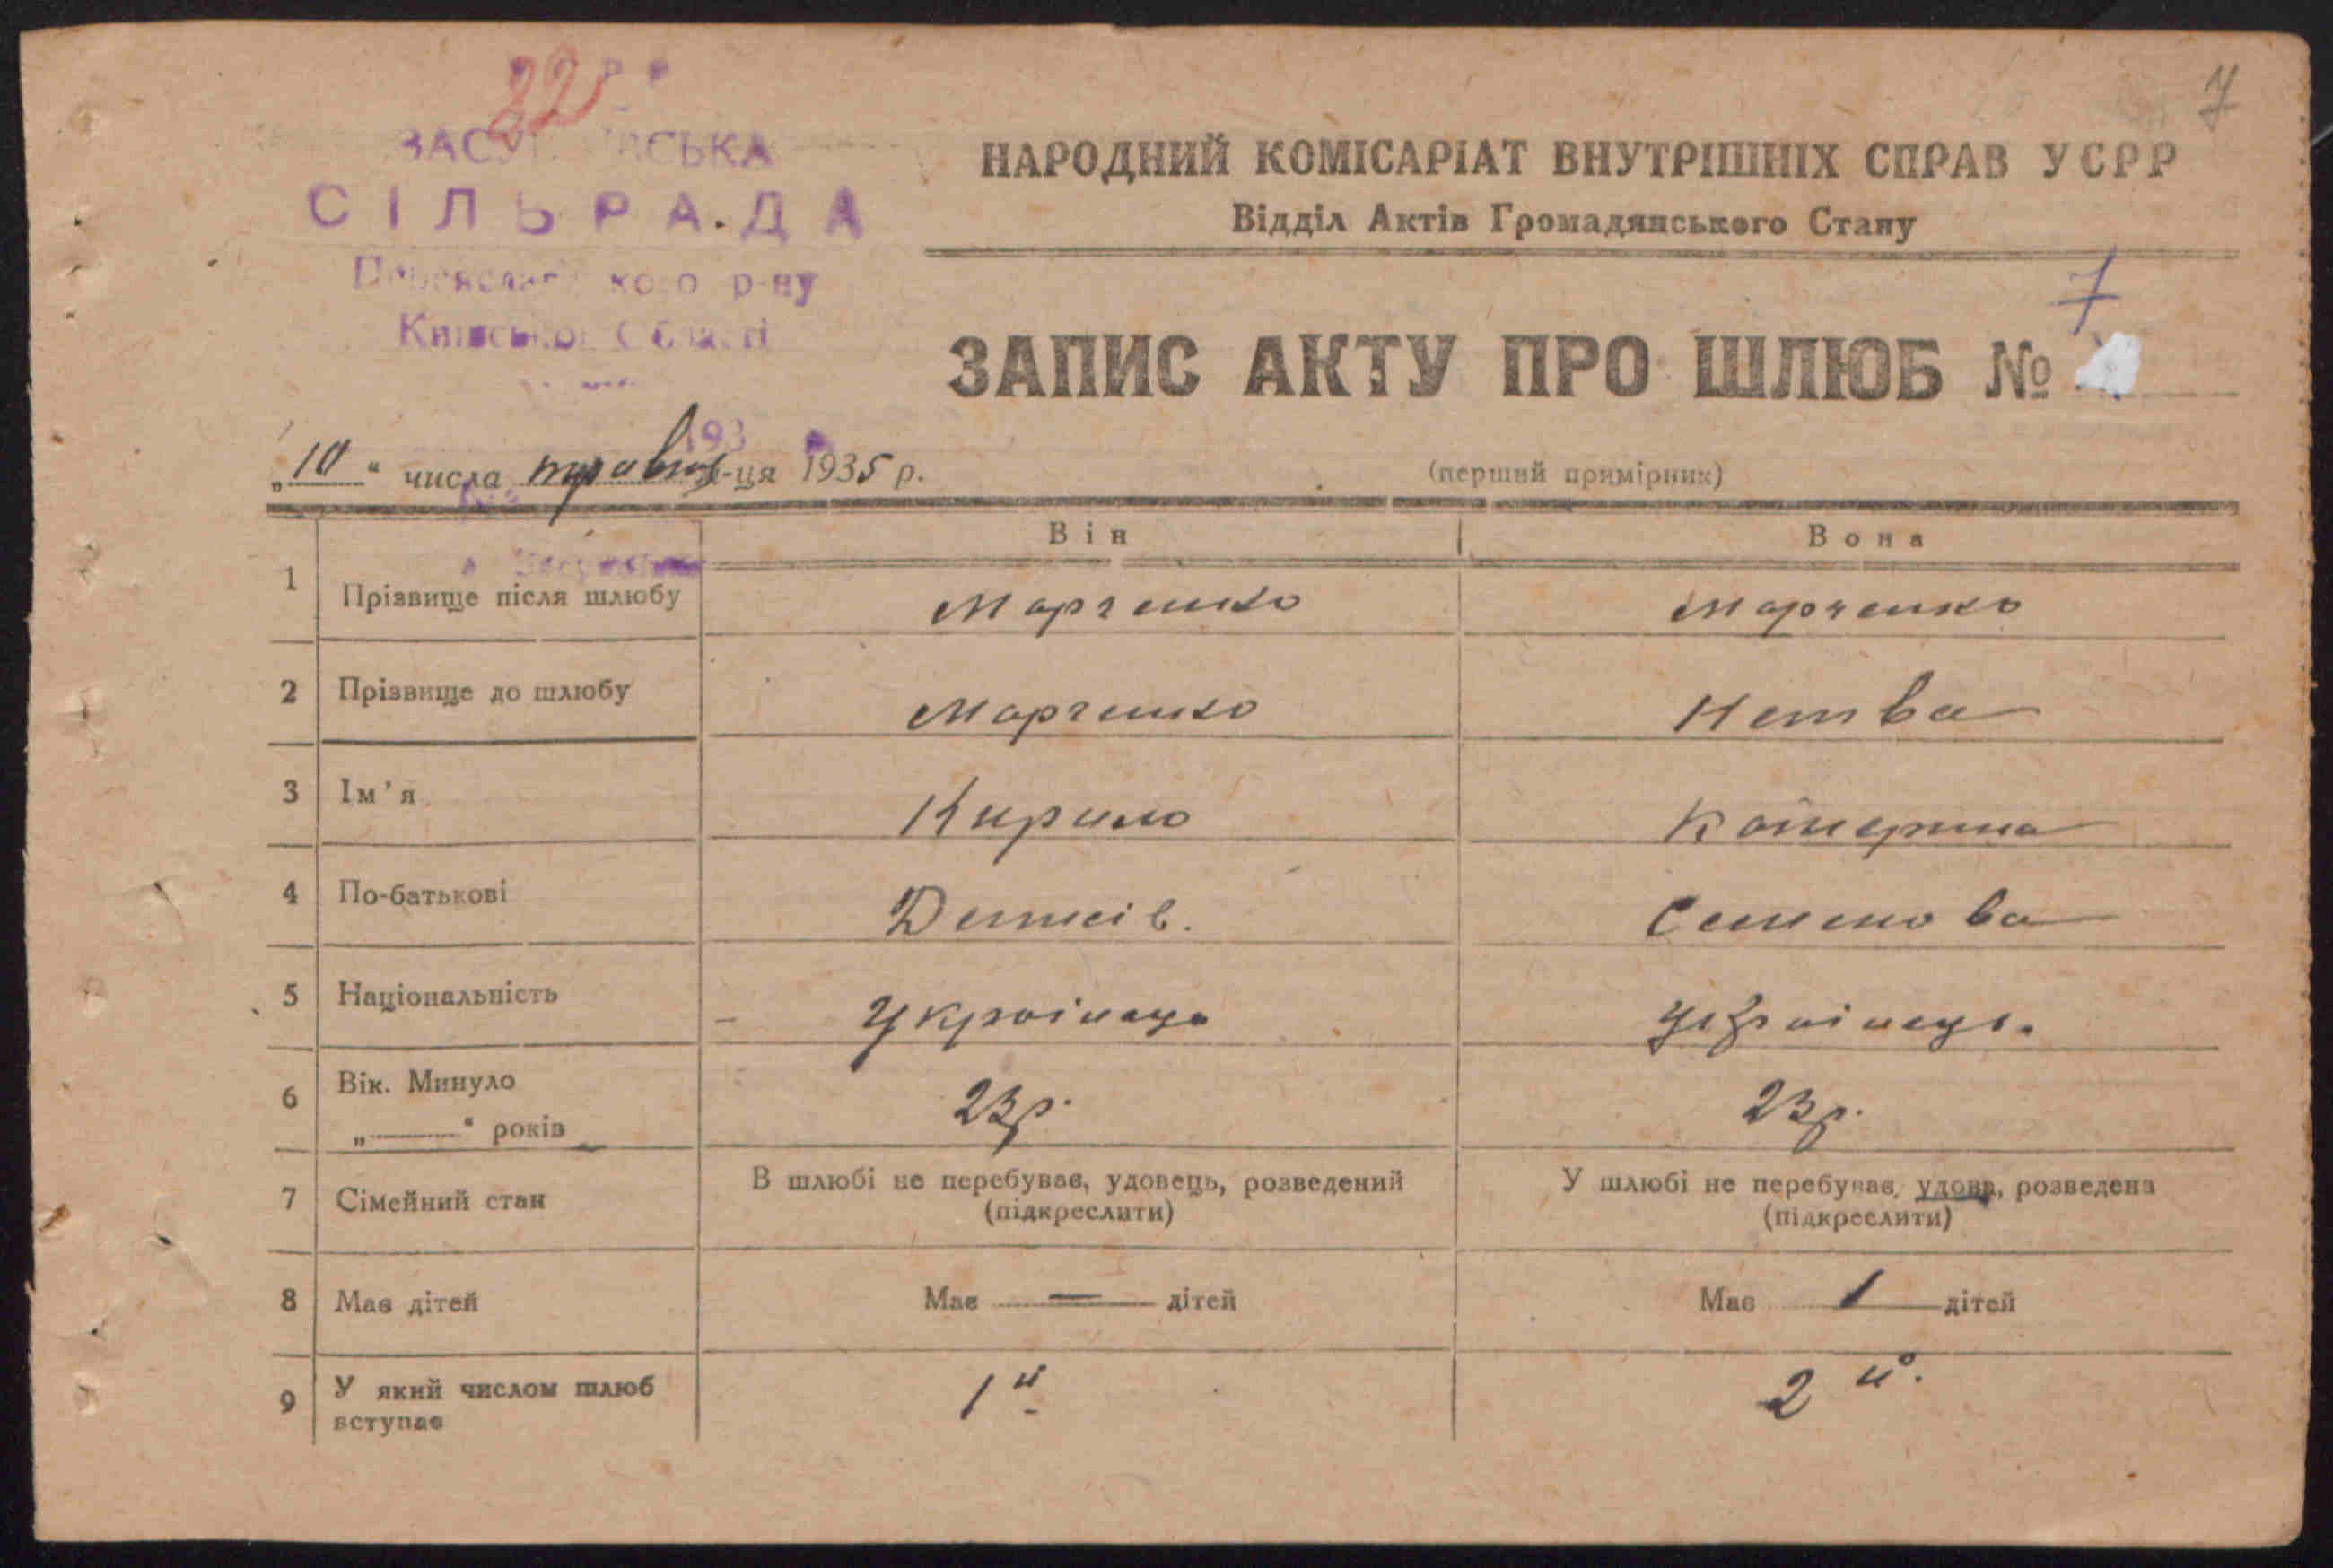 22
7
СІЛЬРАДА
р-ну
НАРОДНИЙ КОМІСАРІАТ ВНУТРІШНІХ СПРАВ УСРР
Відділ Актів Громадянського Стану
7
ЗАПИС АКТУ ПРО ШЛЮБ №
„10“ числа травня м-ця 1935 р.
193
(перший примірник)
Він Вона
1 Прізвище після шлюбу Марченко Марченко
2 Прізвище до шлюбу Марченко Нетва
3 Ім'я Кирило Катерина
4 По-батькові Семенова
5 Національність Українець Українець.
6 Вік. Минуло „——“ років 23р. 23р.
7 Сімейний стан В шлюбі не перебував, удовець, розведений (підкреслити) У шлюбі не перебував, удова, розведена (підкреслити)
8 Має дітей Має — дітей Має 1 дітей
9 У який числом шлюб вступає 1й 2й.